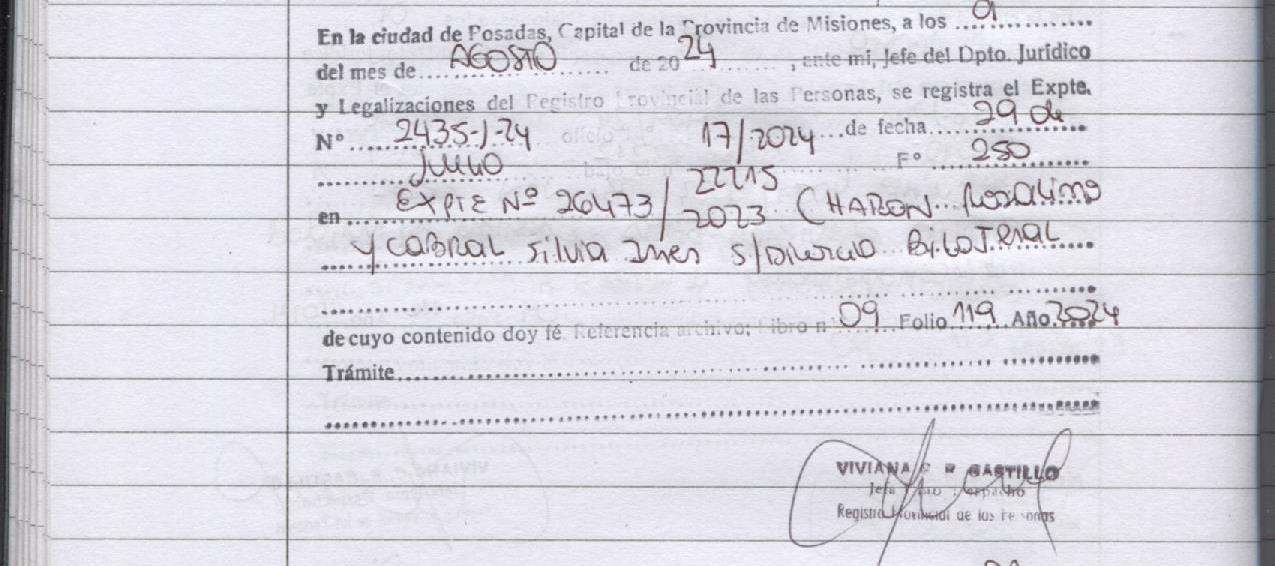 En la ciudad de Posadas, Capital de la Provincia de Misiones, a los 01
del mes de AGOSTO de 2024, ante mi, Jefe del Dpto. Jurídico
y Legalizaciones del Registro Provincial de las Personas, se registra el Expte.
Nº 2435-J-24 oficio 17/2024 de fecha 29 de
JULIO bajo el Fº 250
en EXPTE Nº 26473/2023 22215 CHARON Rosalino
y CABRAL Silvia Ines S/Divorcio BiLATERAL
de cuyo contenido doy fé. Referencia archivo; Libro nº 09 Folio 119 Año 2024
Trámite
VIVIANA CASTILLO
Jefa Dpto Despacho
Registro Provincial de las Personas